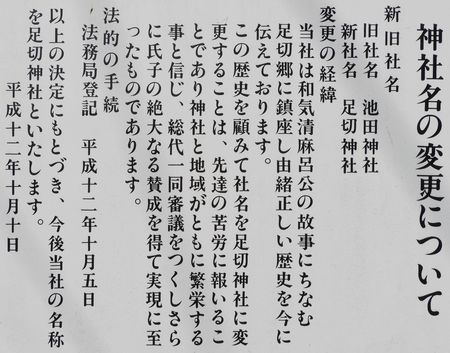 神社名の変更について
新旧社名
旧社名 池田神社
新社名 足切神社
変更の経緯
当社は和気清麻呂公の故事にちなむ
足切郷に鎮座し由緒正しい歴史を今に
伝えております。
この歴史を顧みて社名を足切神社に変
更することは、先達の苦労に報いるこ
とであり神社と地域がともに繁栄する
事と信じ、総代一同審議をつくしさら
に氏子の絶大なる賛成を得て実現に至
ったものであります。
法的の手続
法務局登記 平成十二年十月五日
以上の決定にもとづき、今後当社の名称
を足切神社といたします。
平成十二年十月十日